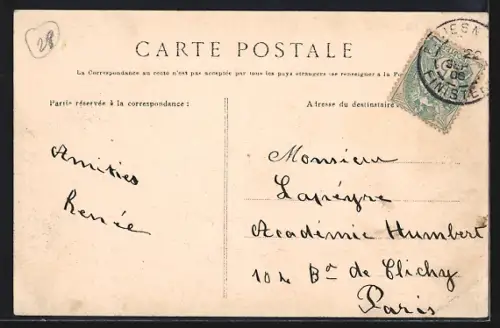 28
CARTE POSTALE
La Correspondance au recto n'est pas acceptée par tous les pays étrangers (se renseigner à la
Partie réservée à la correspondance :
Adresse du destinataire
FINISTÈRE
Amitiés
Renée
Monsieur
Lapéyre
Académie Humbert
104 Bd de Clichy
Paris